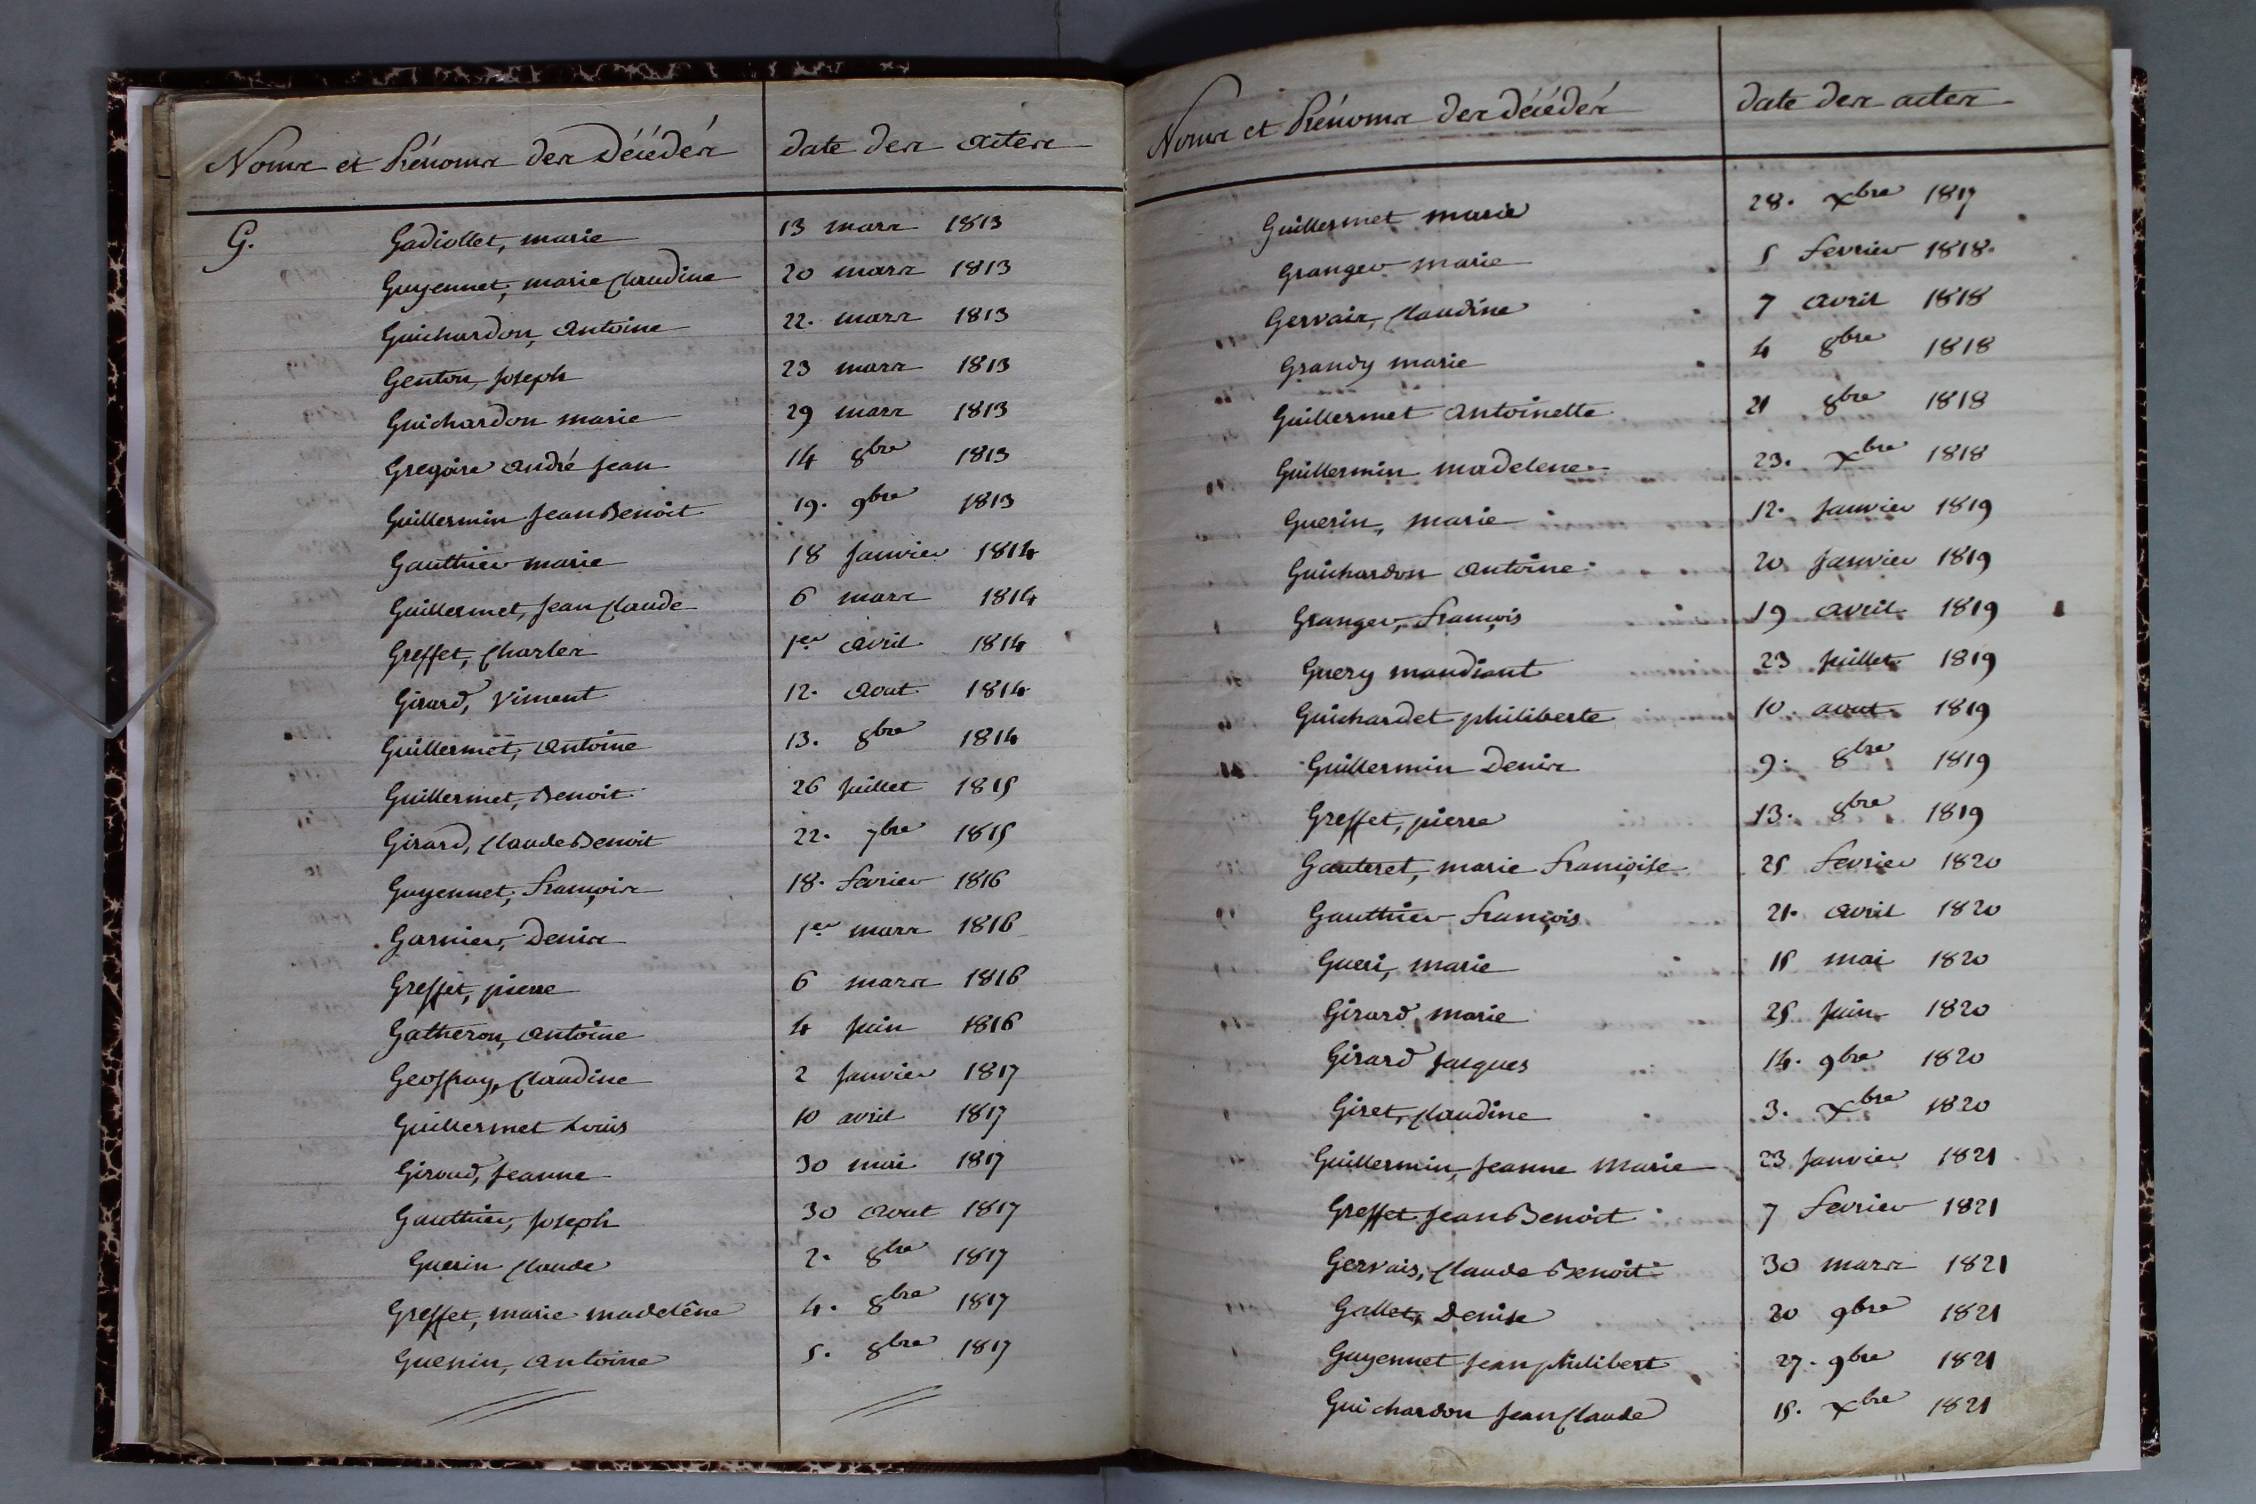 Noms et Prénoms des Décédés date des actes
G. Gadiollet, marie 13 mars 1813
Guyennet, marie Claudine 20 mars 1813
Guichardon, Antoine 22. mars 1813
Genton, Joseph 23 mars 1813
Guichardon marie 29 mars 1813
Gregoire andré Jean 14 8bre 1813
Guillermin Jean Benoit 19. 9bre 1813
Gauthier marie 18 Janvier 1814
Guillermet, Jean Claude 6 mars 1814
Greffet, Charles 1er avril 1814
Girard, Vincent 12. aout 1814
Guillermet, Antoine 13. 8bre 1814
Guillermet, Benoit 26 Juillet 1815
Girard, Claude Benoit 22. 7bre 1815
Guyennet, François 18. fevrier 1816
Garnier, Denis 1er mars 1816
Greffet, pierre 6 mars 1816
Gatheron, Antoine 4 Juin 1816
Geoffray, Claudine 2 Janvier 1817
Guillermet Louis 10 avril 1817
Giroud, Jeanne 30 mai 1817
Gauthier, Joseph 30 aout 1817
Guerin Claude 2. 8bre 1817
Greffet, marie madelêne 4. 8bre 1817
Guenin, Antoine 5. 8bre 1817
Noms et Prénoms des décédés date des actes
Guillermet marie 28. Xbre 1817
Granger marie 5 fevrier 1818.
Gervais, Claudine 7 avril 1818
Grandy marie 4 8bre 1818
Guillermet Antoinette 21 8bre 1818
Guillermin madelene 23. Xbre 1818
Guerin, marie 12. Janvier 1819
Guichardon Antoine 20 Janvier 1819
Granger, François 19 avril 1819
Guery mandiant 23 Juillet 1819
Guichardet philiberte 10. aout 1819
Guillermin Denis 9. 8bre 1819
Greffet, pierre 13. 8bre 1819
Gauteret, marie Françoise 25 fevrier 1820
Gauthier François 21. avril 1820
Gueri, marie 15 mai 1820
Girard marie 25 Juin 1820
Girard Jacques 14. 9bre 1820
Giret, Claudine 3. Xbre 1820
Guillermin, Jeanne Marie 23 Janvier 1821
Greffet Jean Benoit 7 fevrier 1821
Gervais, Claude Benoit 30 mars 1821
Gallet, Denise 20 9bre 1821
Guyennet Jean philibert 27. 9bre 1821
Guichardon Jean Claude 15. Xbre 1821